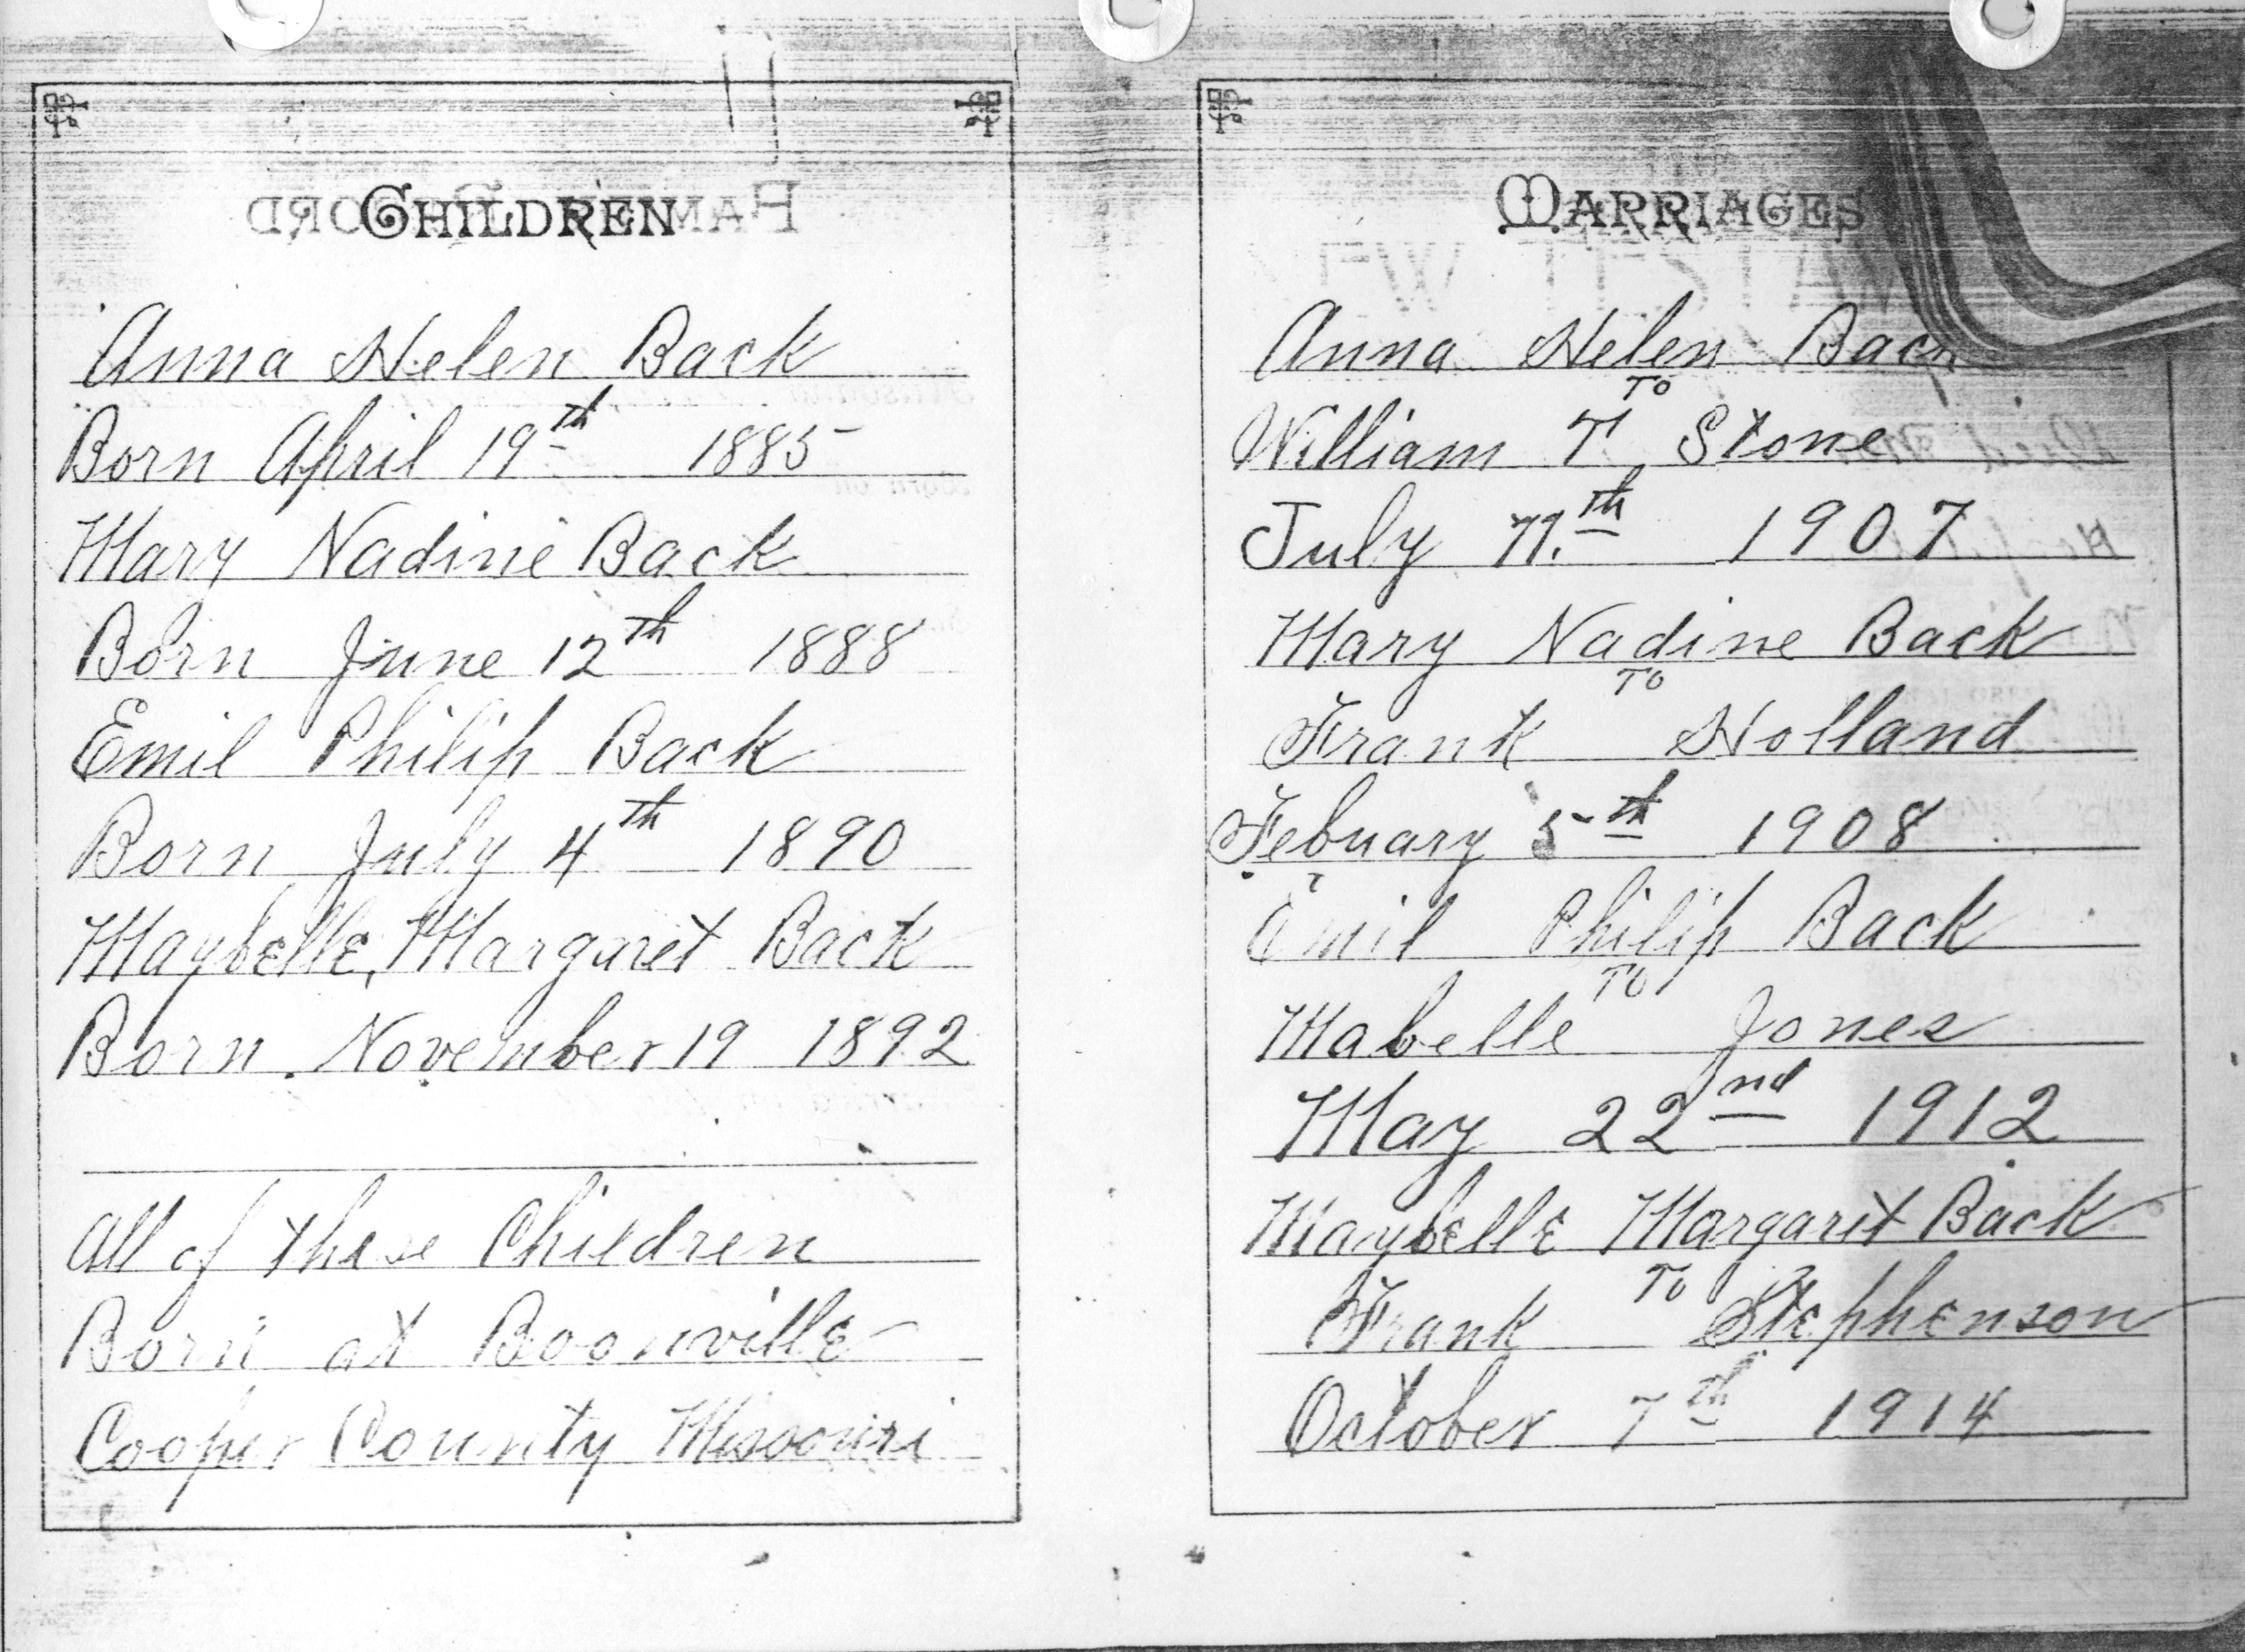 CHILDREN
Anna Helen Back
Born April 19th 1885
Mary Nadine Back
Born June 12th 1888
Emil Philip Back
Born July 4th 1890
Maybelle, Margaret Back
Born November 19 1892
All of these Children
Born at Boonville
Cooper County Missouri
MARRIAGES
Anna Helen Back
To
William T Stone
July th 1907
Mary Nadine Back
To
Frank Holland
Febuary 5th 1908
Emil Philip Back
To
Mabelle Jones
May 22nd 1912
Maybelle Margaret Back
To
Frank Stephenson
October 7th 1914